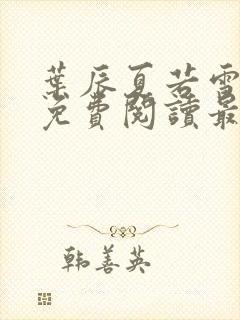 葉辰夏若雪
免費閱讀最
韩善英